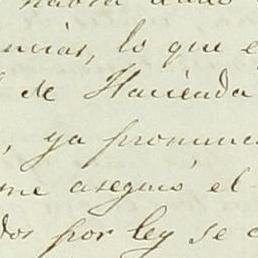 había dado
ncias, lo que e
de Hacienda
, ya pronunc
me aseguró el
dos por ley se